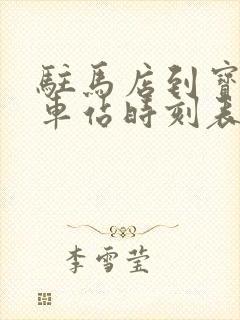 駐馬店到寶
車站時刻表
李雪莹